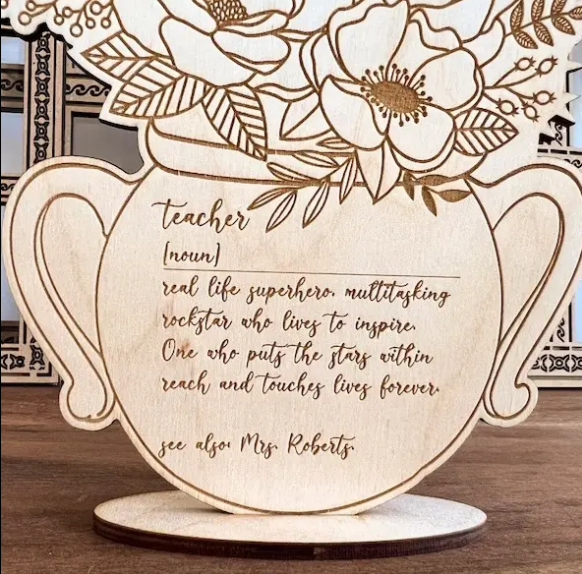 teacher
[noun]
real life superhero. multitasking
rockstar who lives to inspire.
One who puts the stars within
reach and touches lives forever.
see also: Mrs. Roberts.